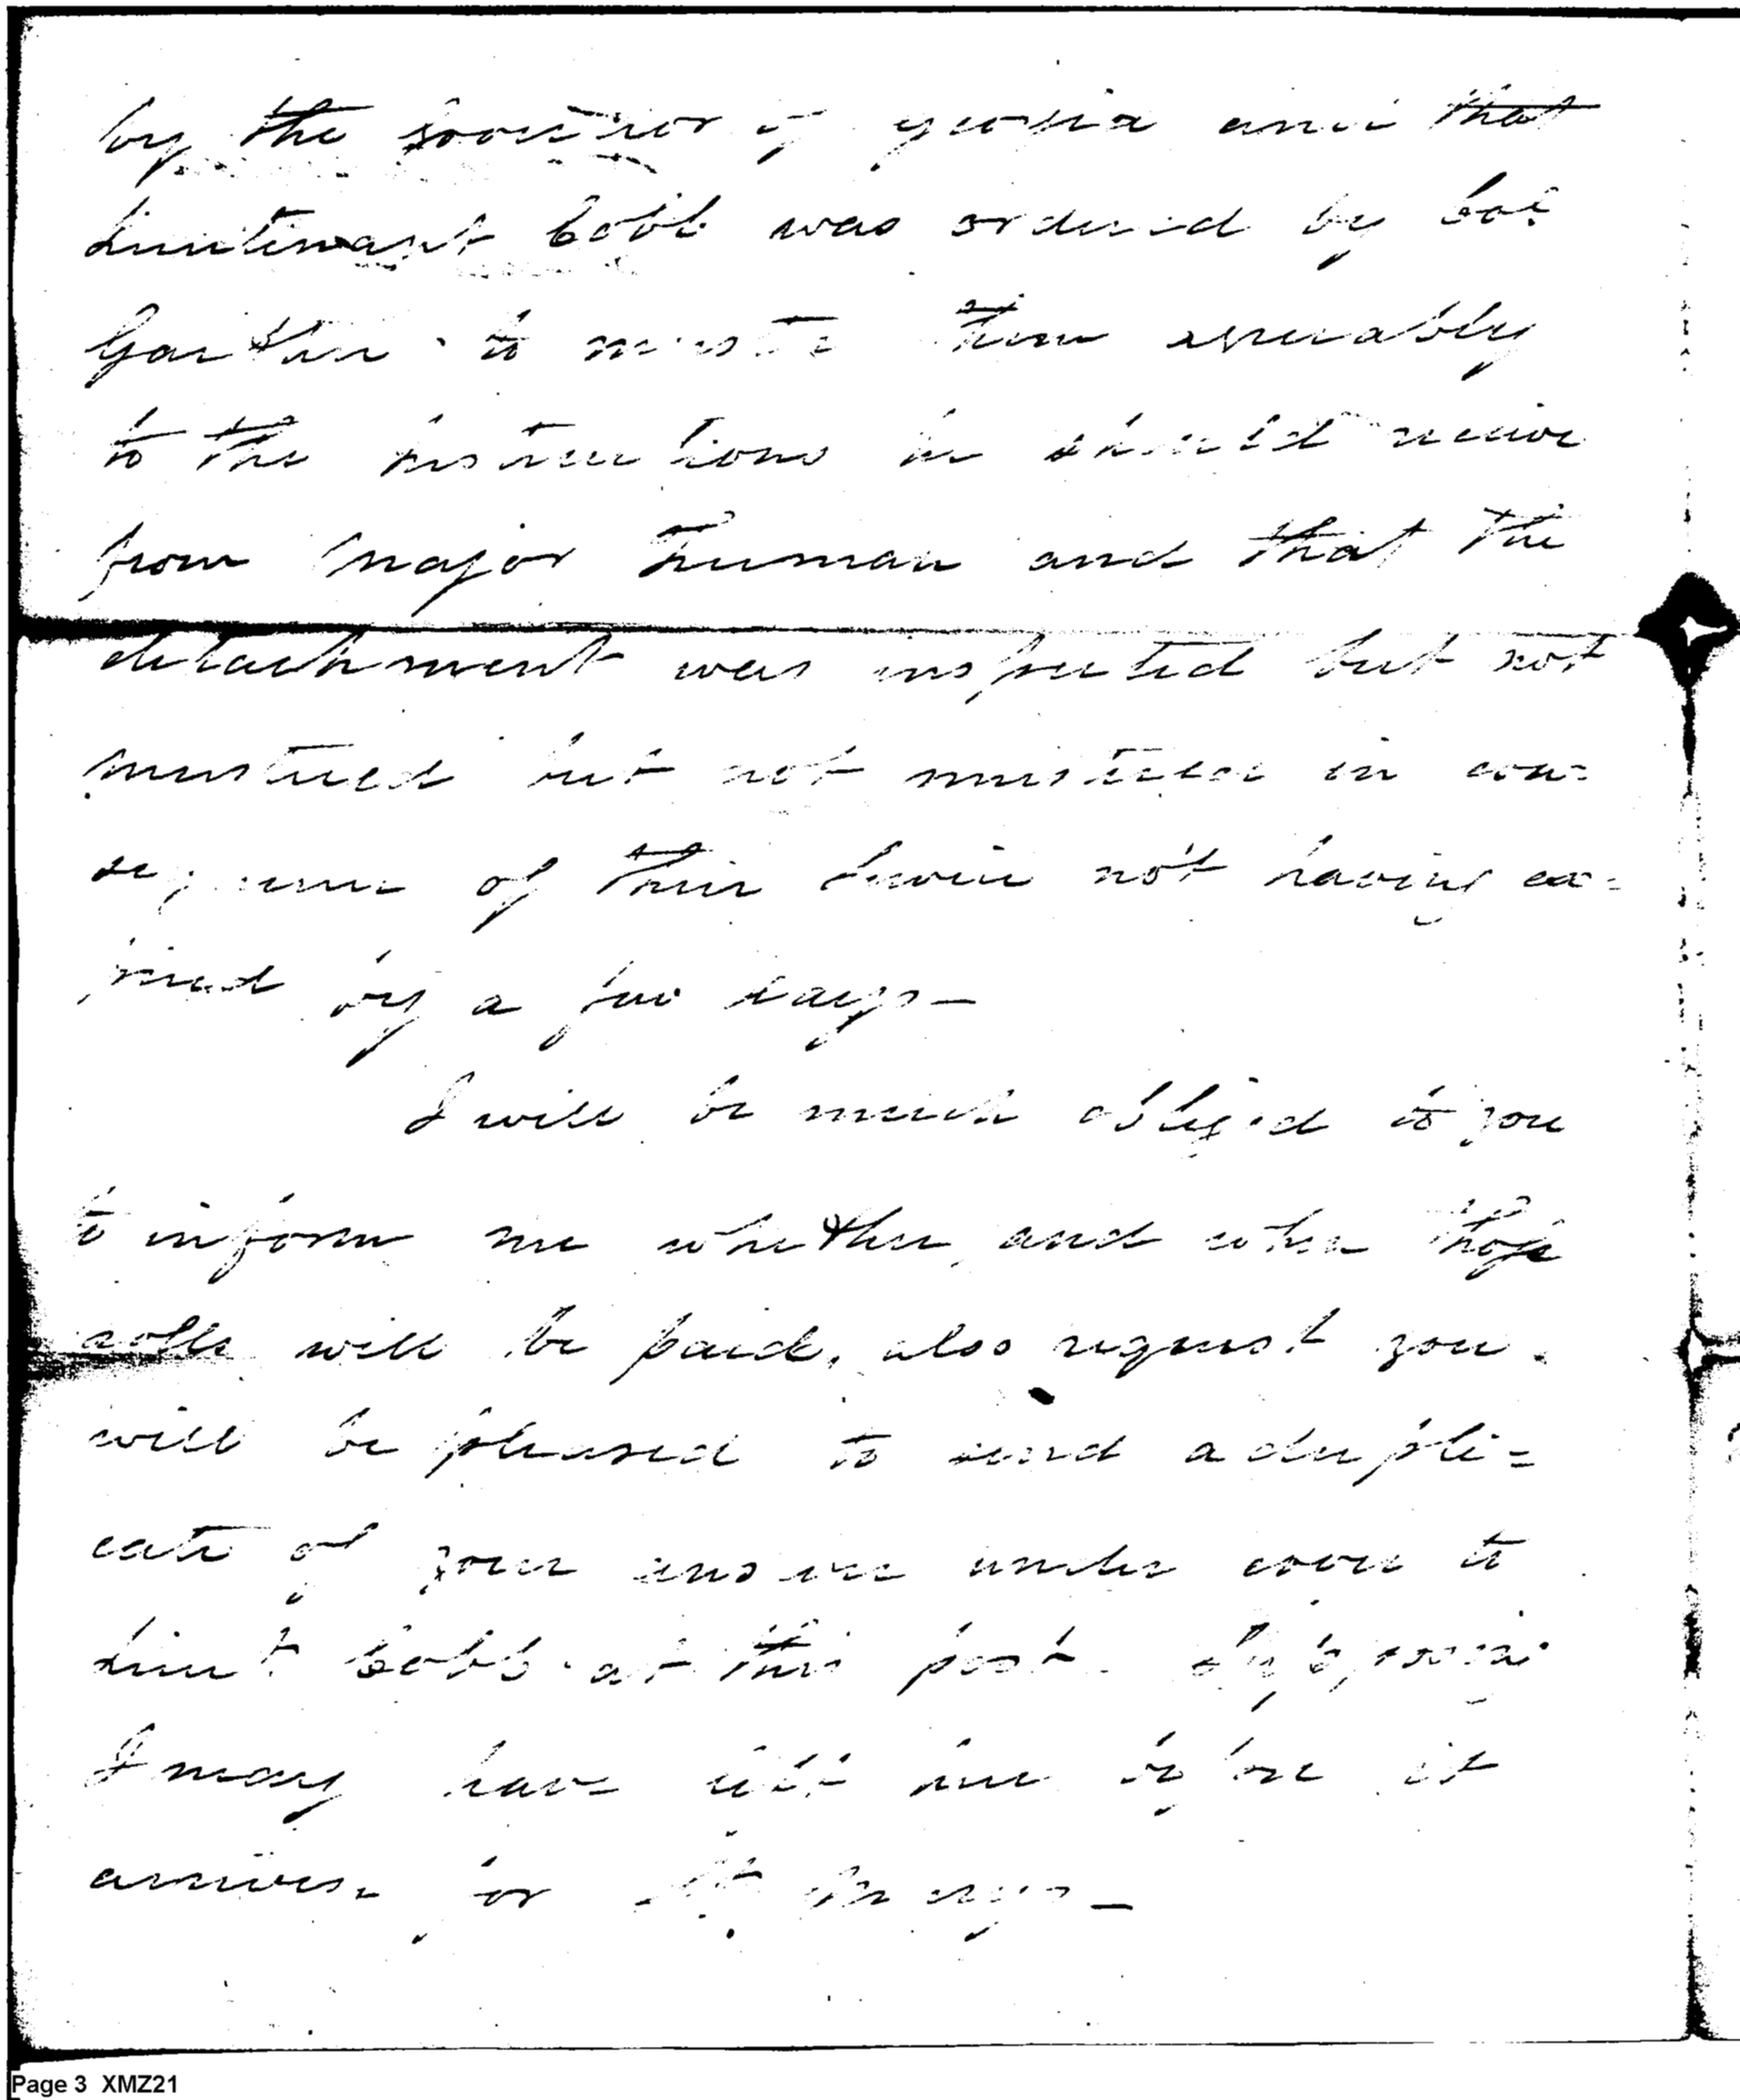 by the Governor of georgia and that
Lieutenant Bobb was ordered by Col
Gaither to muster them agreeably
to the instructions he should receive
from Major Freeman and that the
detachment was inspected but not
mustered but not mustered in con=
sequence of their service not having ex=
pired by a few days—
I will be much obliged to you
to inform me whether, and when those
rolls will be paid, also request you
will be pleased to send a dupli=
cate of your answer under cover to
Lieut Bobb at this post
I may have left here before it
arrives for St Marys—
Page 3 XMZ21